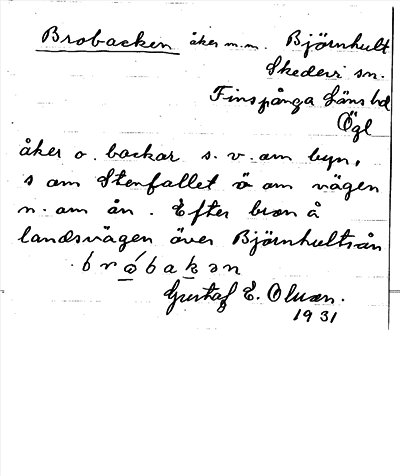 Brobacken åker m.m. Björnhult
Skedevi sn.
Finspånga Läns hd
Ögl
åker o. backar s.v. om byn,
s om Stenfallet ö om vägen
n. om ån. Efter bron å
landsvägen över Björnhultsån
bró̱baḵən
Gustaf E. Olsson.
1931